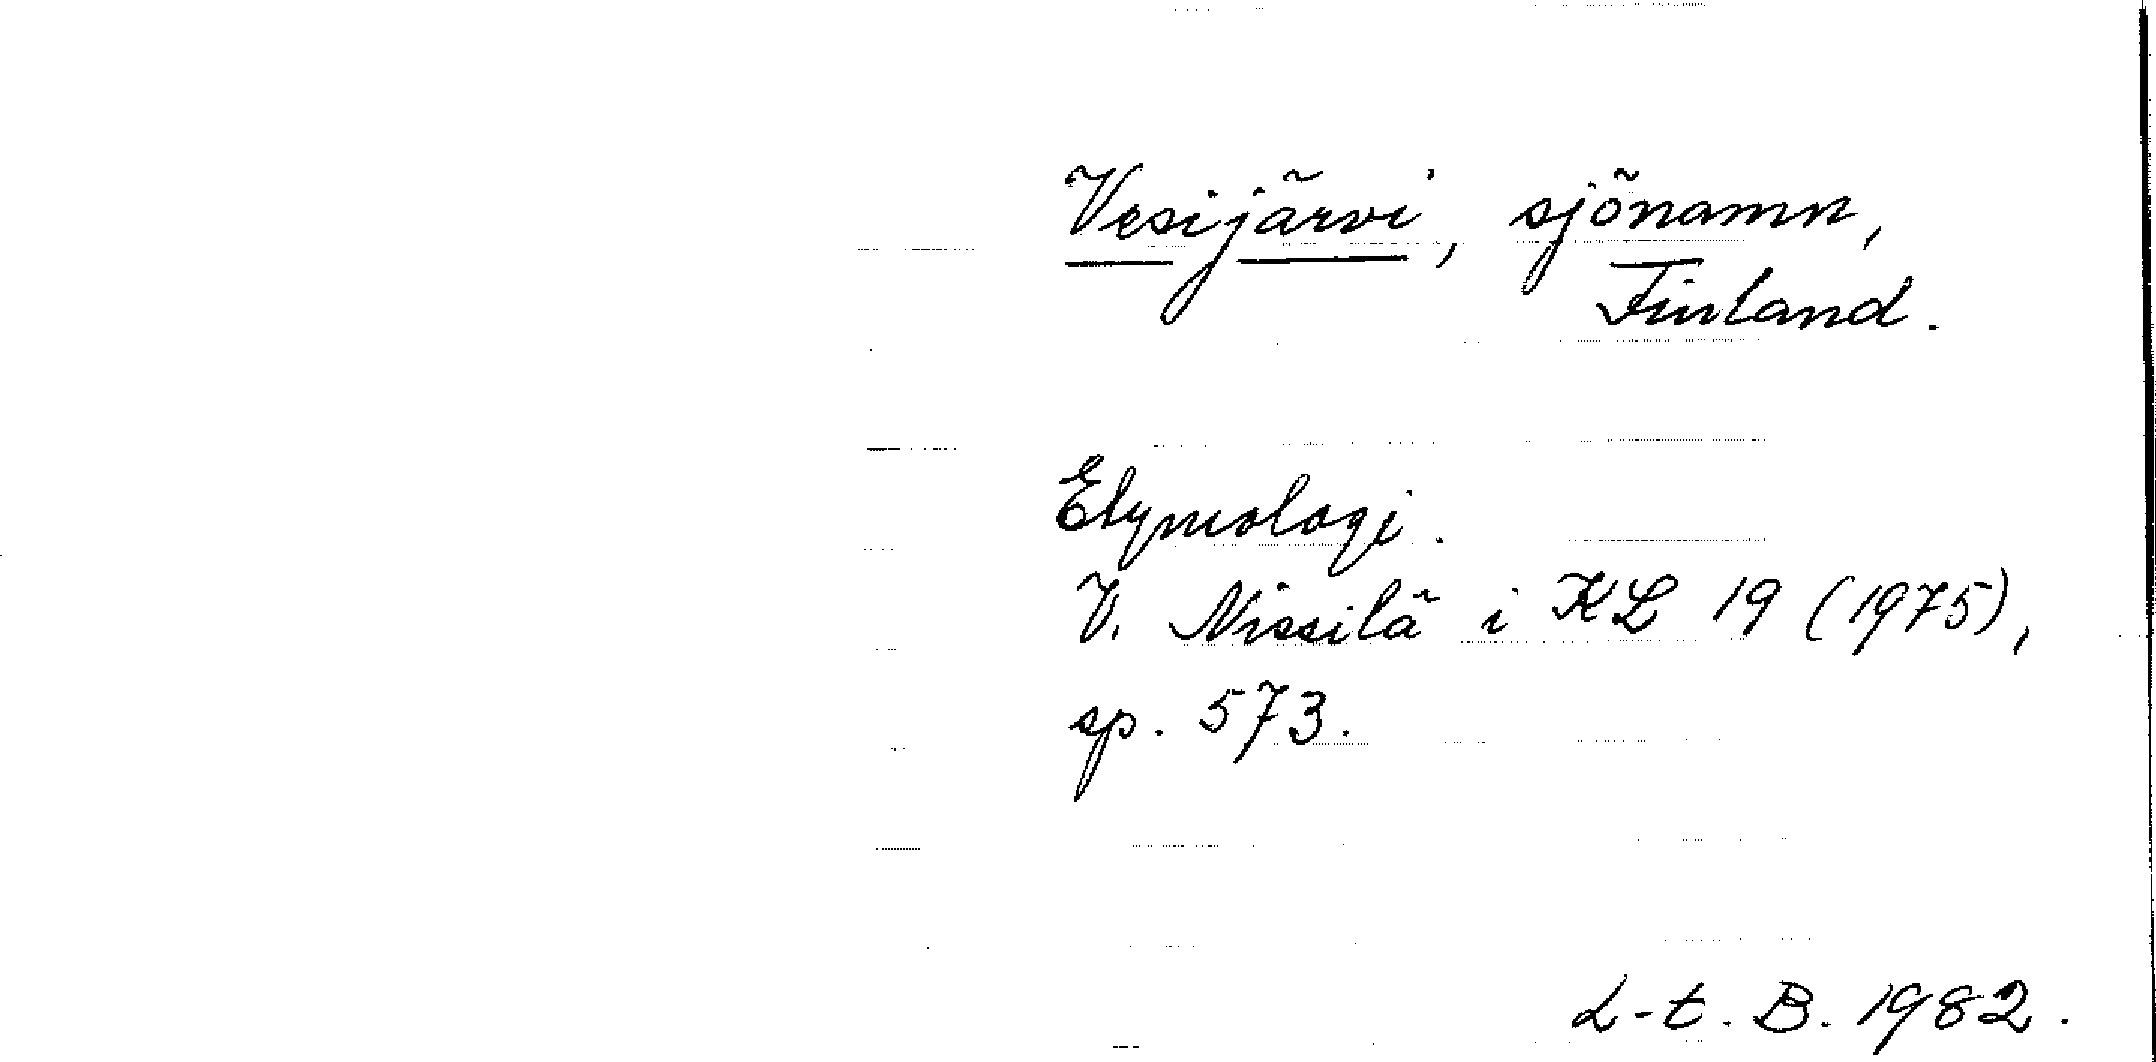 Vesijärvi, sjönamn,
Finland.
Etymologi.
V. Nissilä i KL 19 (1975),
sp. 573.
L-t. B. 1982.